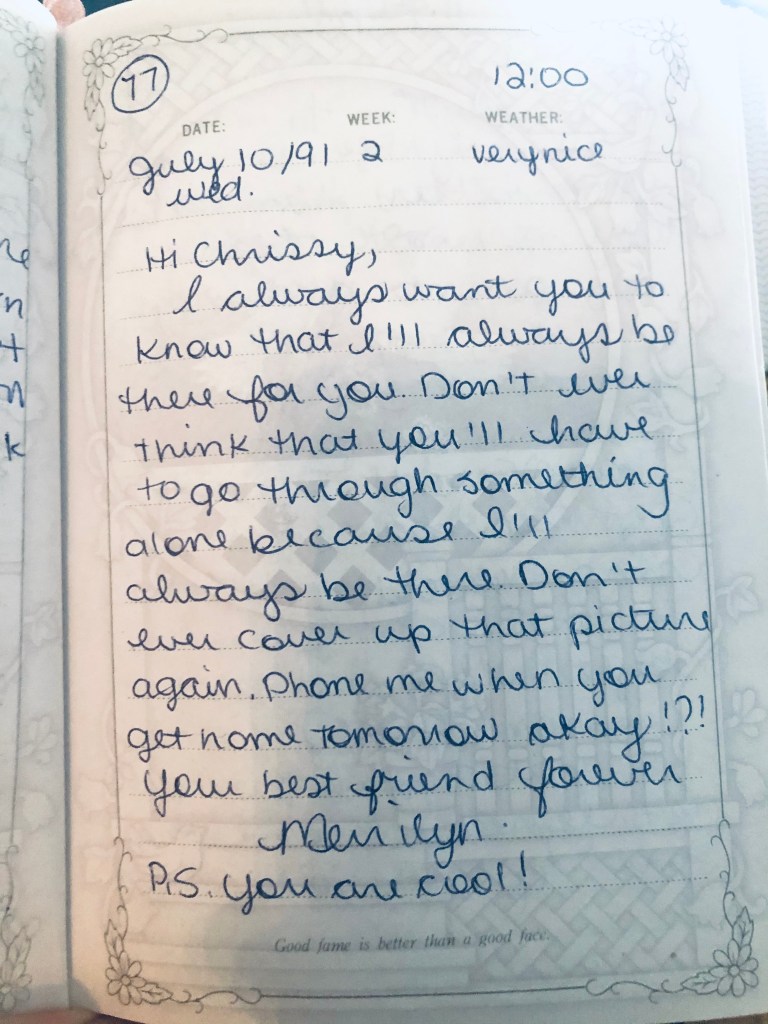 77
12:00
DATE: WEEK: WEATHER:
July 10/91 2 very nice
Wed.
Hi Chrissy,
I always want you to
know that I'll always be
there for you. Don't ever
think that you'll have
to go through something
alone because I'll
always be there. Don't
ever cover up that picture
again. Phone me when you
get home tomorrow okay!?!
Your best friend forever
Merrilyn.
P.S. you are cool!
Good fame is better than a good face.
ne
n
t
n
k